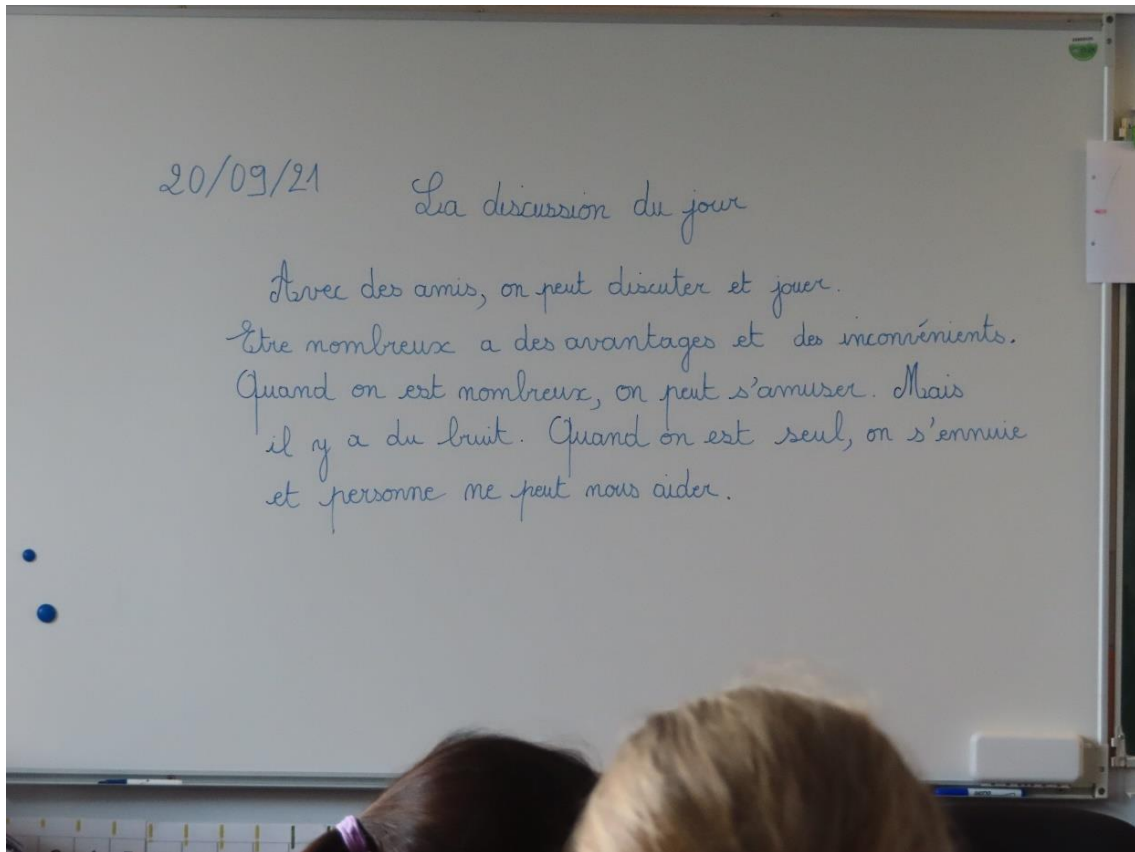 20/09/21
La discussion du jour
Avec des amis, on peut discuter et jouer.
Etre nombreux a des avantages et des inconvénients.
Quand on est nombreux, on peut s'amuser. Mais
il y a du bruit. Quand on est seul, on s'ennuie
et personne ne peut nous aider.